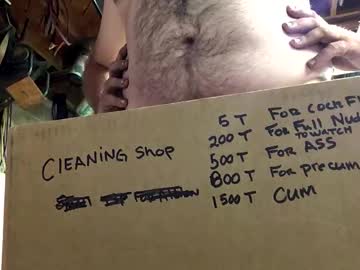 5 T FOR COCK Fl
200 T FOR Full Nud
TO WATCH
CLEANING Shop
500 T FOR ASS
800 T FOR precum
1500 T CUM